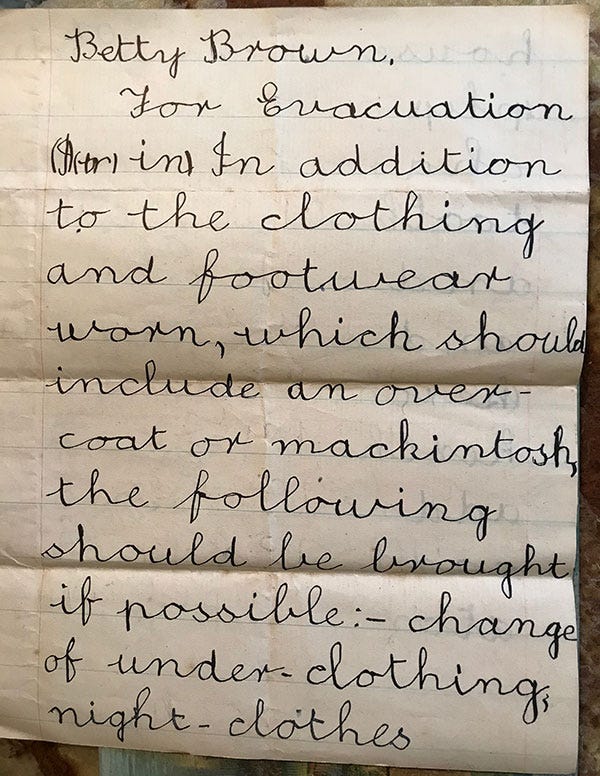 Betty Brown.
For Evacuation
in) In addition
to the clothing
and footwear
worn, which should
include an over-
coat or mackintosh,
the following
should be brought
if possible:- change
of under-clothing,
night-clothes